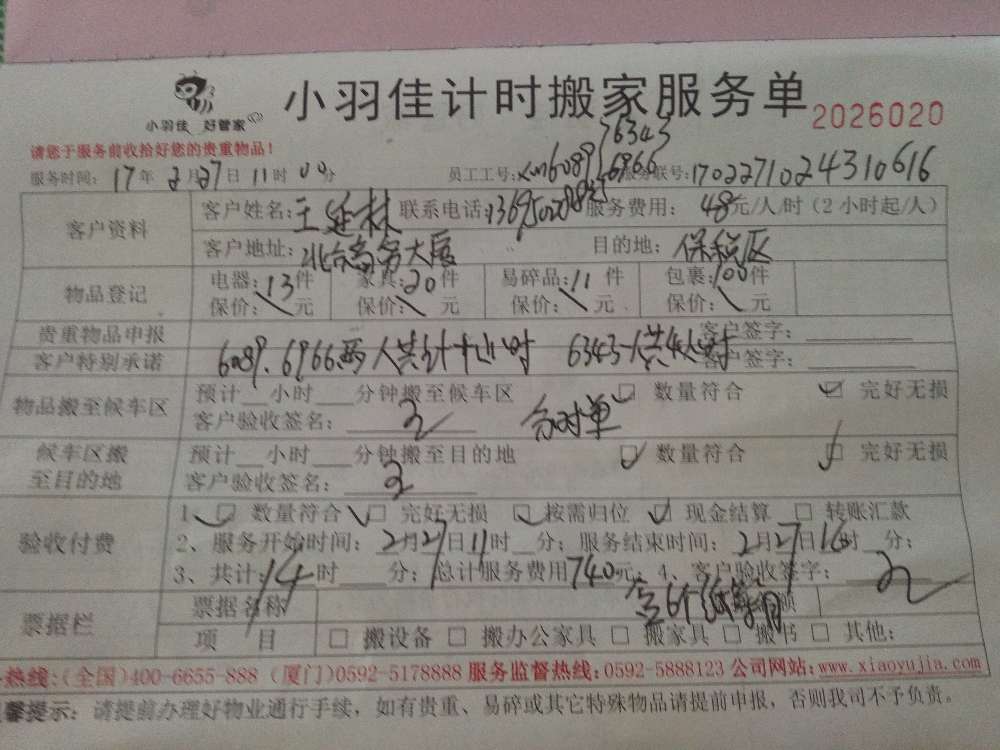 小羽佳计时搬家服务单 2026020
小羽佳 好管家
请您于服务前收拾好您的贵重物品！
6343
服务时间：17年2月27日11时00分 员工工号：xm6089 6966 服务联号：170227102431 0616
客户资料 客户姓名：王延林 联系电话： 服务费用：48元/人/时（2小时起/人）
客户地址：北台商务大厦 目的地：保税区
物品登记 电器：13件 家具：20件 易碎品：11件 包裹：100件
保价：\元 保价：\元 保价：\元 保价：\元
贵重物品申报 客户签字：
客户特别承诺 6089.6966两人共计十小时 6343一人共4小时 客户签字：
物品搬至候车区 预计__小时__分钟搬至候车区 数量符合 完好无损
客户验收签名： 分时单
候车区搬至目的地 预计__小时__分钟搬至目的地 数量符合 完好无损
客户验收签名：
验收付费 1、数量符合 完好无损 按需归位 现金结算 转账汇款
2、服务开始时间：2月27日11时__分；服务结束时间：2月27日16时__分；
3、共计：14时__分；总计服务费用740元；4、客户验收签字：
票据栏 票据名称 含6个纸箱
项 目 搬设备 搬办公家具 搬家具 搬书 其他：
热线：(全国)400-6655-888 (厦门)0592-5178888 服务监督热线：0592-5888123 公司网站：www.xiaoyujia.com
馨提示：请提前办理好物业通行手续，如有贵重、易碎或其它特殊物品请提前申报，否则我司不予负责。